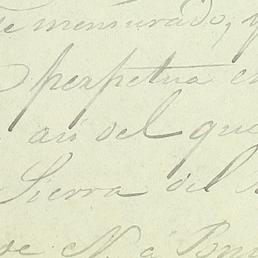 se mensurado, y
perpetua en
asi del que
Sierra del
de N. a